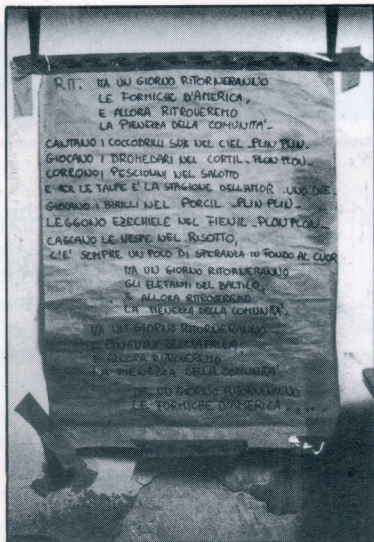 RIT. MA UN GIORNO RITORNERANNO
LE FORMICHE D'AMERICA,
E ALLORA RITROVEREMO
LA PIENEZZA DELLA COMUNITA'_
CANTANO I COCCODRILLI SUL NEL CIEL _PLIN PLIN_
GIOCANO I DROMEDARI NEL CORTIL _PLON PLON_
CORRONO I PESCIOLINI NEL SALOTTO
E PER LE TALPE E' LA STAGIONE DELL'AMOR _UNO DUE_
GIOCANO I BIRILLI NEL PORCIL _PLIN PLIN_
LEGGONO EZECHIELE NEL FIENIL _PLON PLON_
CASCANO LE VESPE NEL RISOTTO,
C'E' SEMPRE UN POLO DI SPERANZA IN FONDO AL CUOR
MA UN GIORNO RITORNERANNO
GLI ELEFANTI DEL BALTICO,
E ALLORA RITROVEREMO
LA PIENEZZA DELLA COMUNITA'.
MA UN GIORNO RITORNERANNO
I PINGUINI DELL'AFRICA
E ALLORA RITROVEREMO
LA PIENEZZA DELLA COMUNITA'
MA UN GIORNO RITORNERANNO
LE FORMICHE D'AMERICA ....